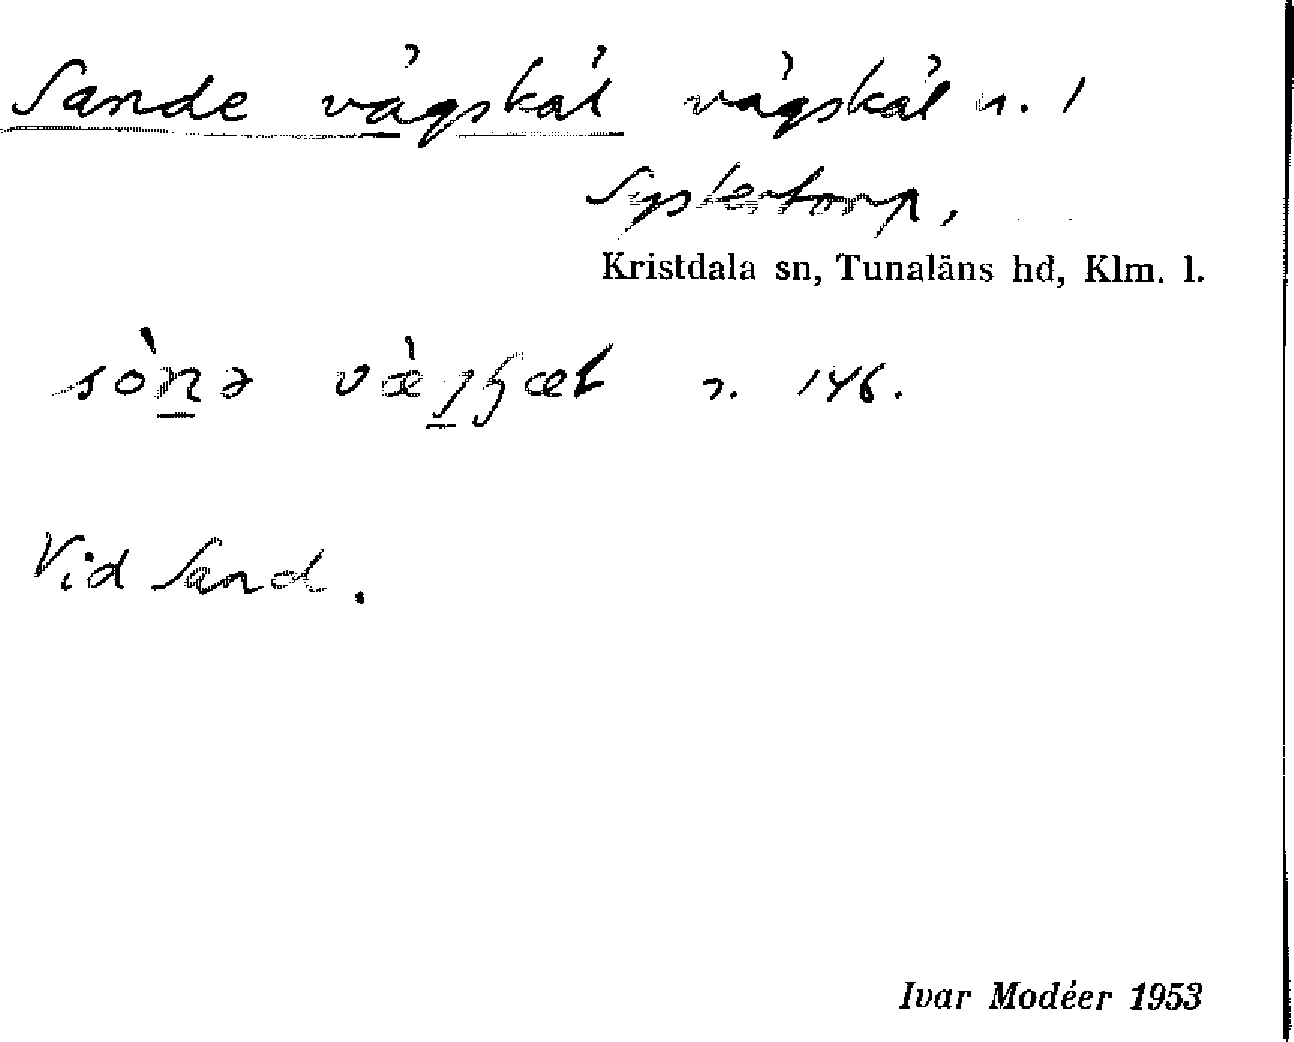 Sande vägskäl vägskäl n. 1
Systertorp,
Kristdala sn, Tunaläns hd, Klm. l.
sònə n. 146.
Vid Sand.
Ivar Modéer 1953